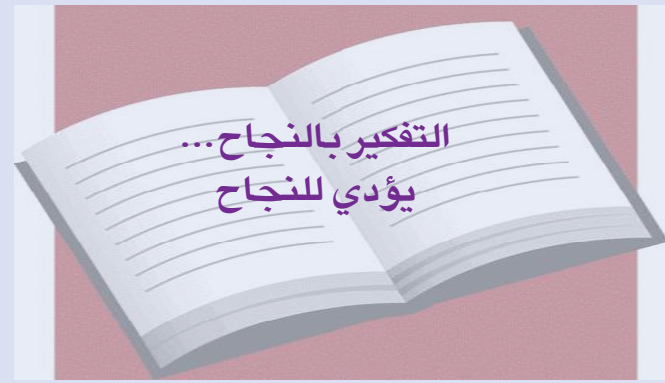 التفكير بالنجاح...
يؤدي للنجاح